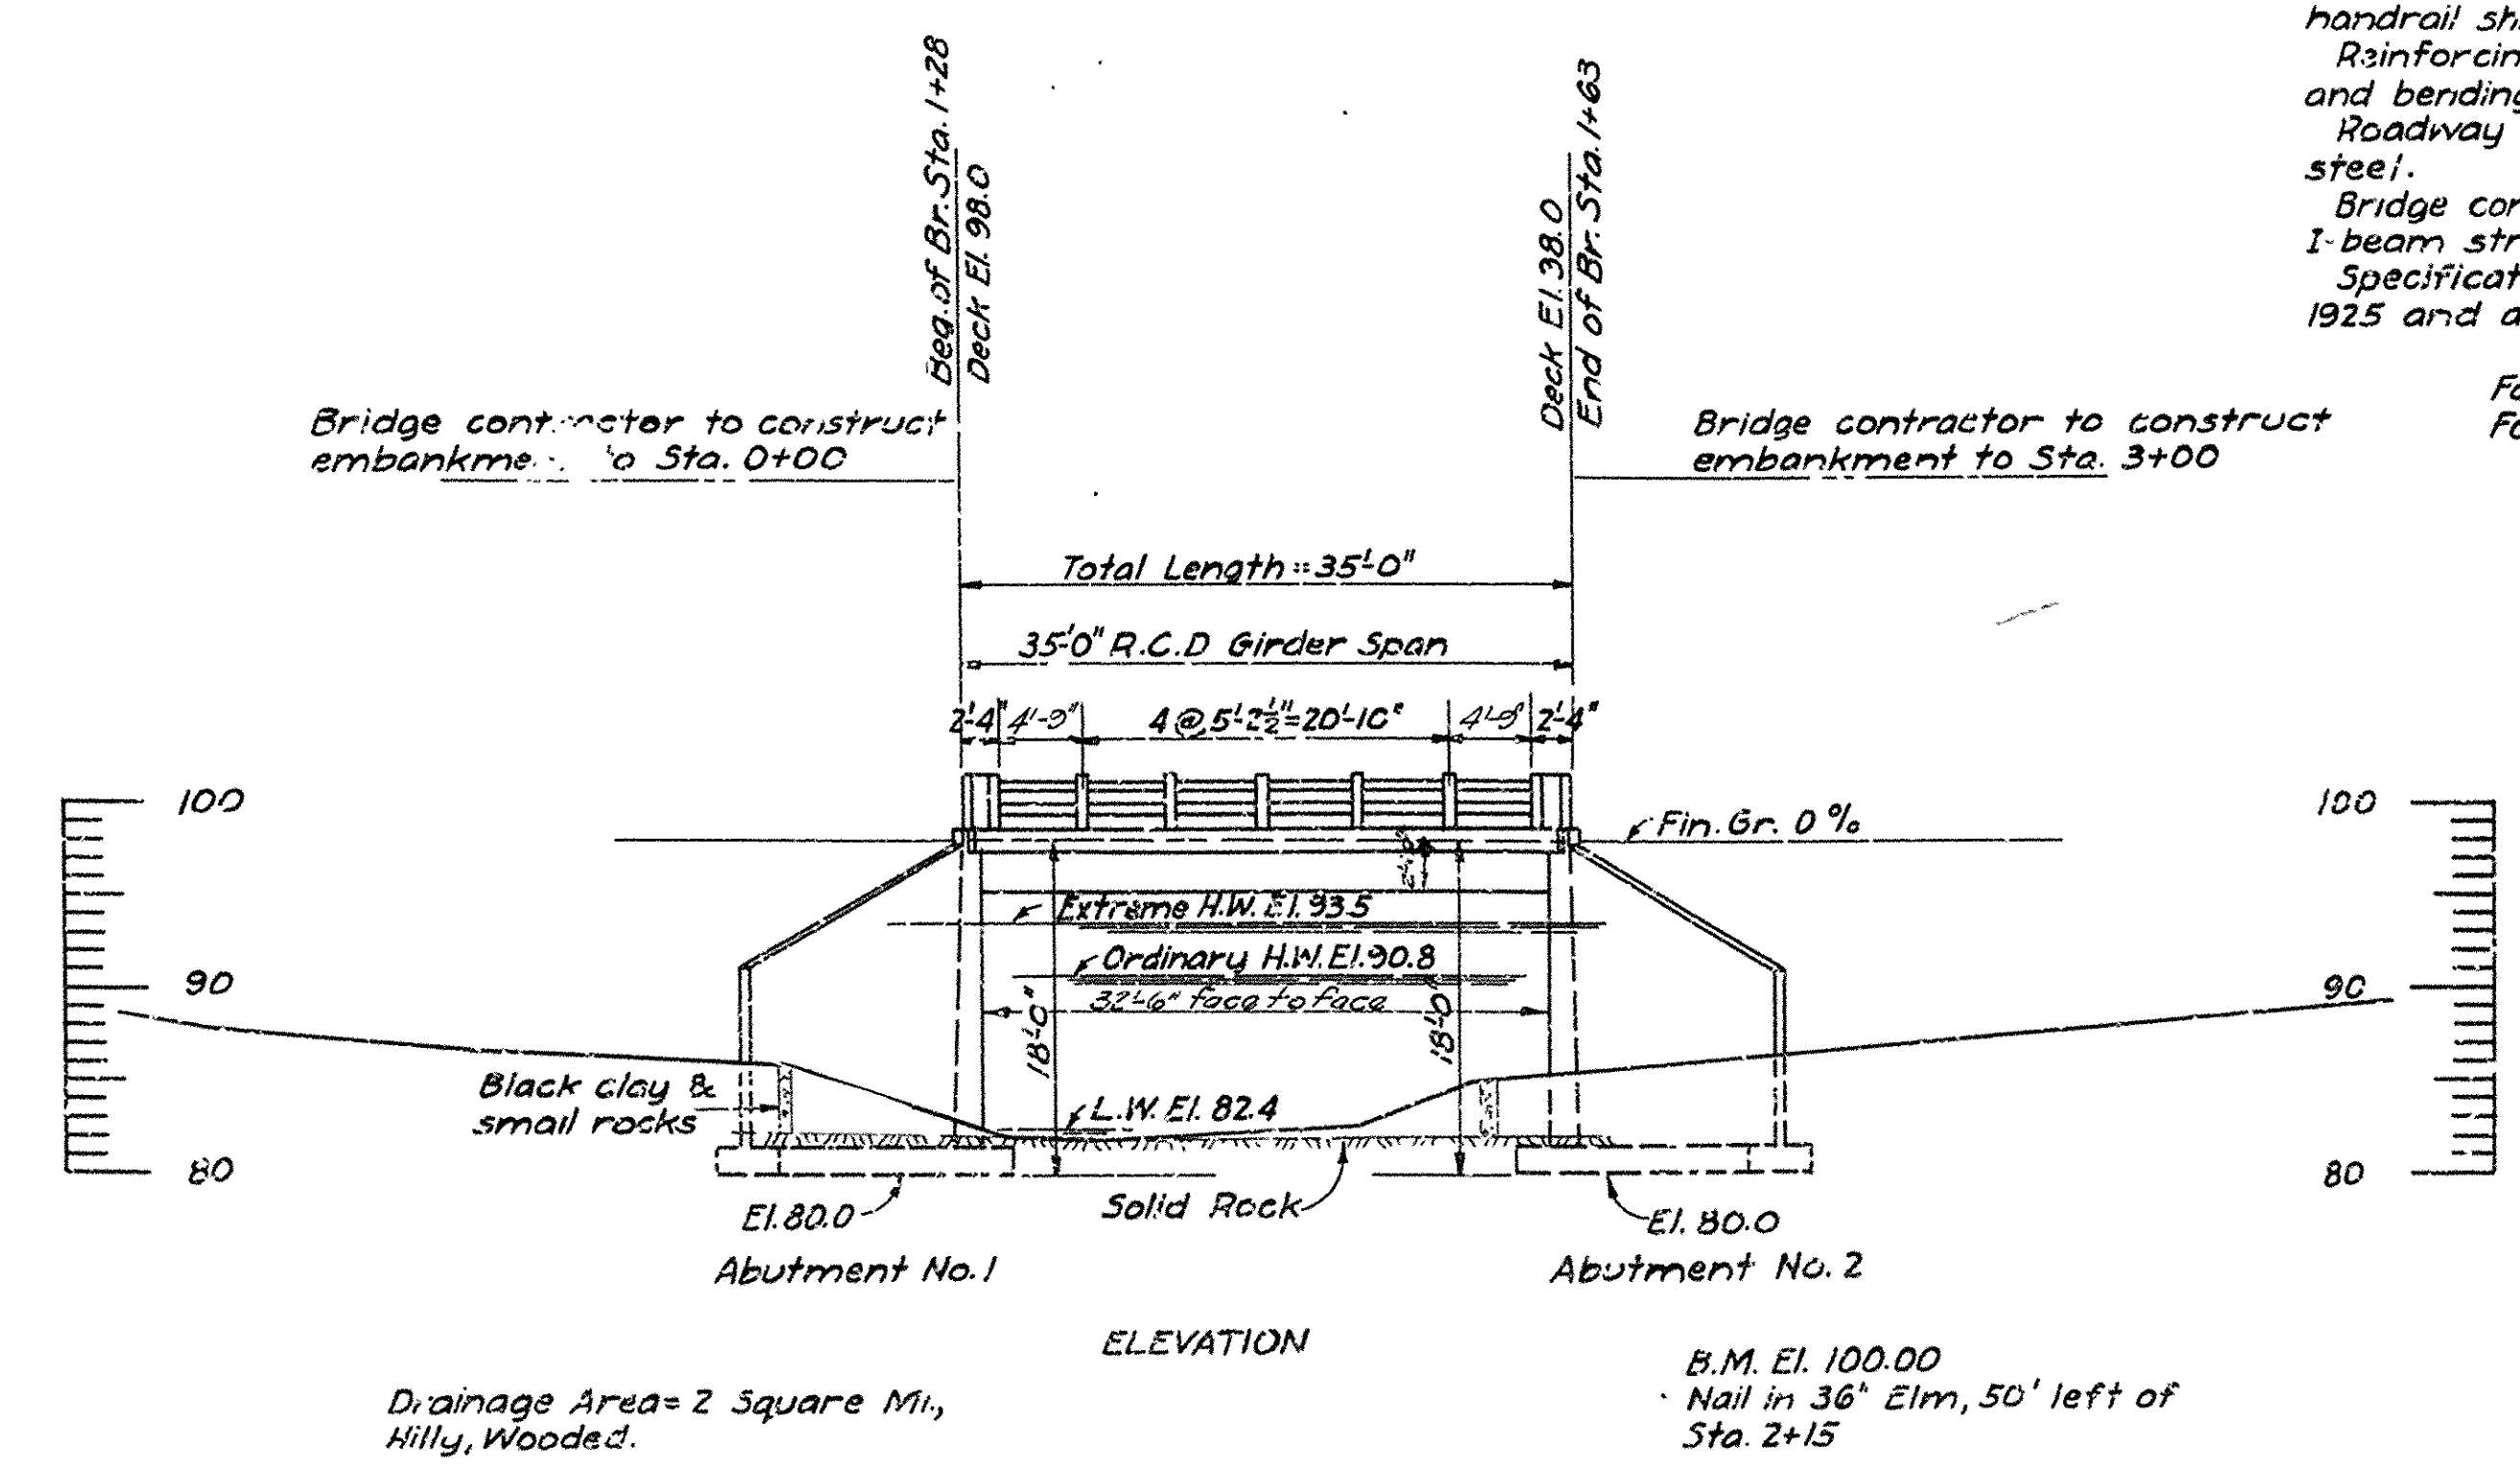 handrail
Reinforcin
and bending
Roadway
steel.
Bridge
I-beam
Specificat
1925 and
Beg. of Br. Sta. 1+28
Deck El. 98.0
Deck El. 38.0
End of Br. Sta. 1+63
Bridge contractor to construct
to Sta. 0+00
Bridge contractor to construct
embankment to Sta. 3+00
Total Length = 35'-0"
35'-0" R.C.D Girder Span
2'-4" 4'-9" 4 @ 5'-2½" = 20'-10" 4'-9" 2'-4"
100
100
Fin. Gr. 0 %
Extreme H.W. El. 93.5
Ordinary H.W. El. 90.8
32'-6" face to face
90
90
18'-0"
18'-0"
Black clay &
small rocks
L.W. El. 82.4
80
80
El. 80.0
Solid Rock
El. 80.0
Abutment No. 1
Abutment No. 2
ELEVATION
Drainage Area = 2 Square Mi.,
Hilly, Wooded.
B.M. El. 100.00
Nail in 36" Elm, 50' left of
Sta. 2+15